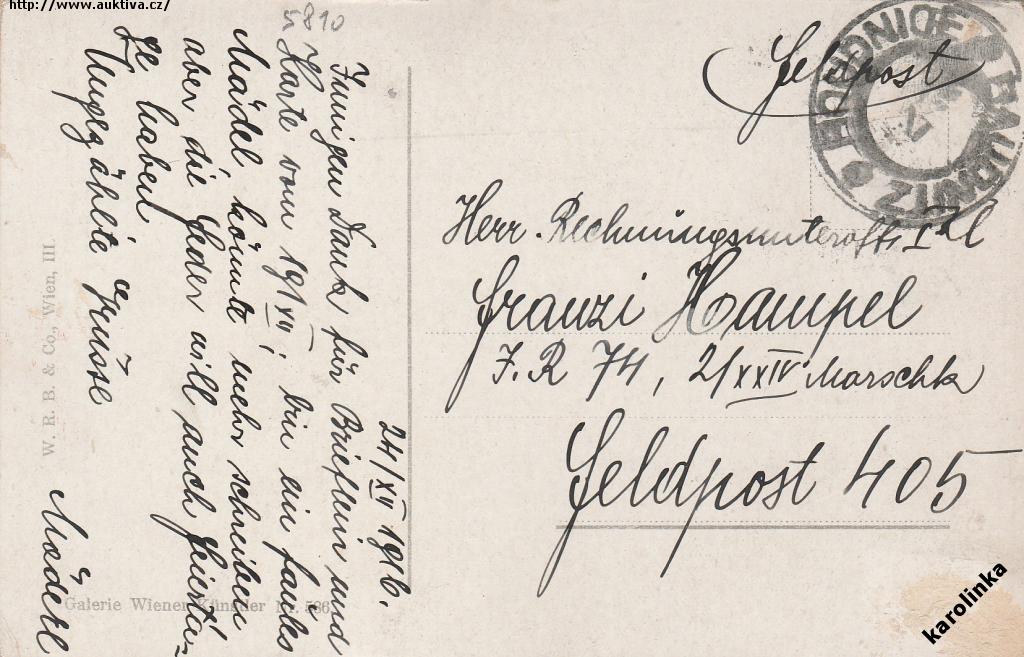 http://www.auktiva.cz/
5810
Feldpost
HOUDNICE RAUDNITZ
V
Herr Rechnungsunteroff. I Kl
Franzi Hampel
I.R 74, 2/XXIV Marschk
Feldpost 405
24/XII 1916.
Innigen Dank für Brieflein und
Karte vom 19/XII; bin ein faules
Mädel, könnte mehr schreiben
aber die Feder will auch Feierta-
ge haben.
Ungezählte Grüsse
Mäderl
W. R. B. & Co., Wien, III.
Galerie Wiener Künstler Nr. 566
karolinka